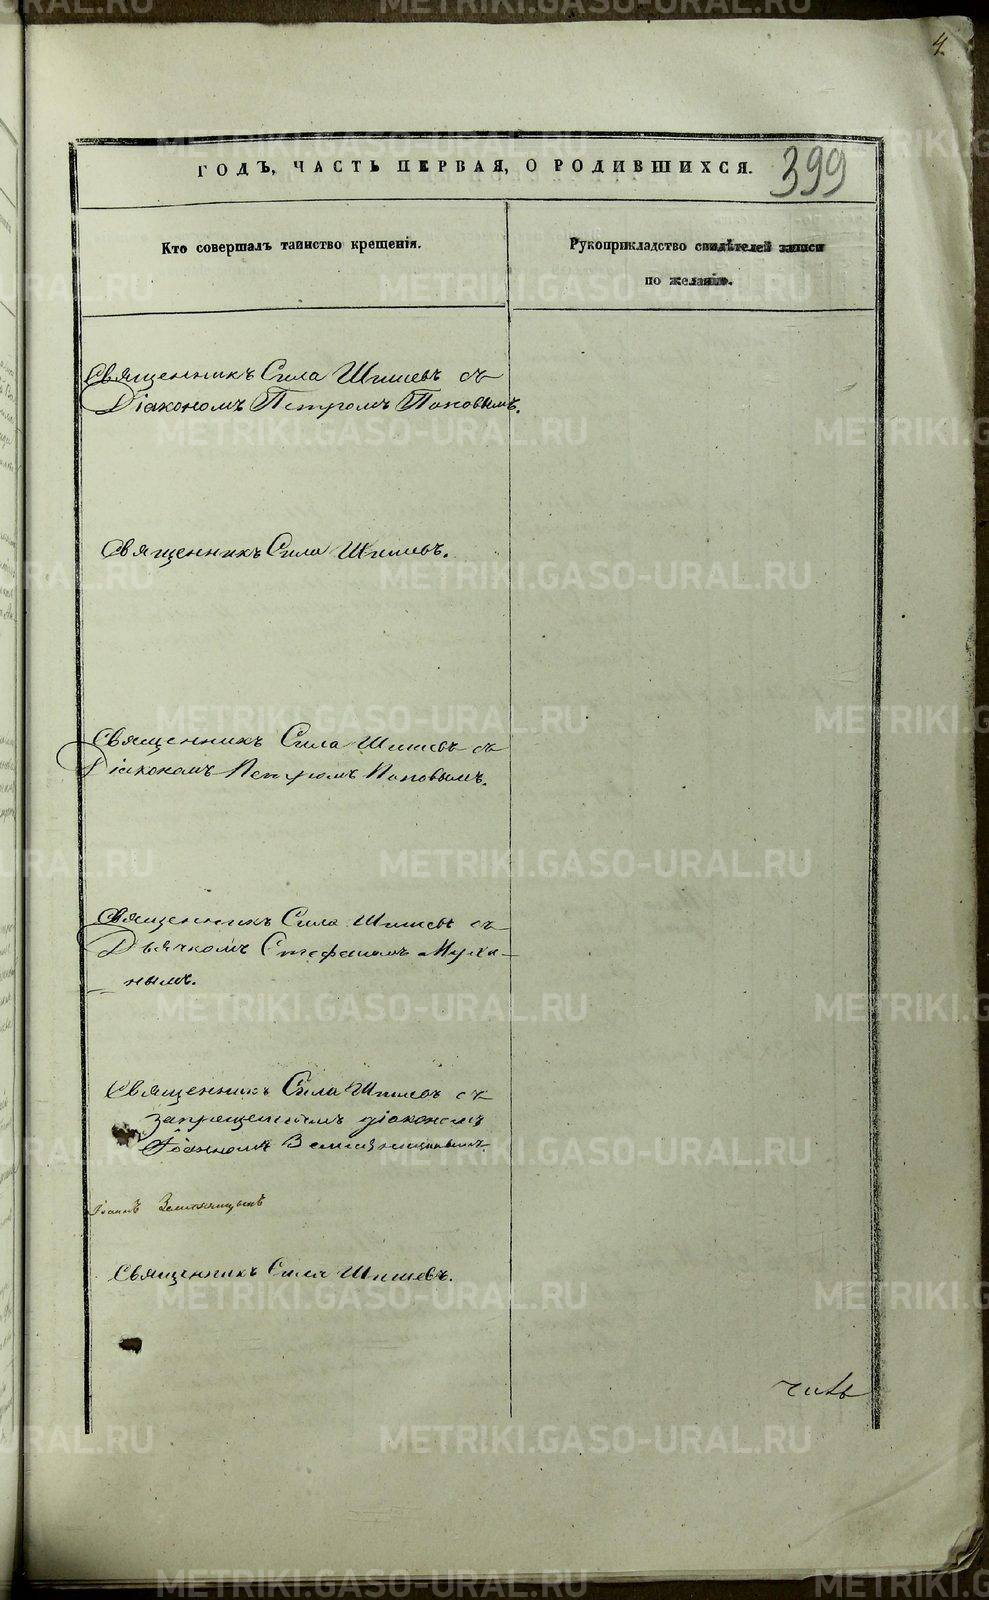 4.
ГОДЪ, ЧАСТЬ ПЕРВАЯ, О РОДИВШИХСЯ.
399
Кто совершалъ таинство крещенія.
Рукоприкладство свидѣтелей записи
по желанію.
Священникъ Сила Шишевъ съ
Діакономъ Петромъ Поповымъ.
Священникъ Сила Шишевъ.
Священникъ Сила Шишевъ съ
Діакономъ Петромъ Поповымъ.
Священникъ Сила Шишевъ съ
Дьячкомъ Стефаномъ Муха-
нымъ.
Священникъ Сила Шишевъ съ
запрещеннымъ діакономъ
Іоанномъ Земляницынымъ.
Іоаннъ Земляницынъ
Священникъ Сила Шишевъ.
METRIKI.GASO-URAL.RU